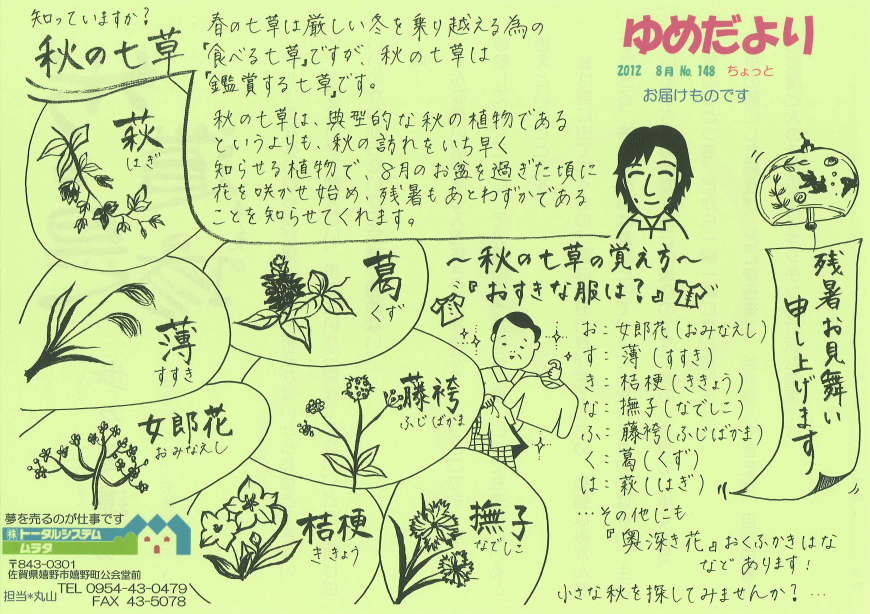 知っていますか?
秋の七草
春の七草は厳しい冬を乗り越える為の
『食べる七草』ですが、秋の七草は
『鑑賞する七草』です。
秋の七草は、典型的な秋の植物である
というよりも、秋の訪れをいち早く
知らせる植物で、8月のお盆を過ぎた頃に
花を咲かせ始め、残暑もあとわずかである
ことを知らせてくれます。
ゆめだより
2012 8月 No. 148 ちょっと
お届けものです
残暑お見舞い
申し上げます
萩
はぎ
葛
くず
薄
すすき
藤袴
ふじばかま
女郎花
おみなえし
桔梗
ききょう
撫子
なでしこ
〜秋の七草の覚え方〜
『おすきな服は?』
お:女郎花(おみなえし)
す:薄(すすき)
き:桔梗(ききょう)
な:撫子(なでしこ)
ふ:藤袴(ふじばかま)
く:葛(くず)
は:萩(はぎ)
…その他にも
『奥深き花』おくふかきはな
などあります!
小さな秋を探してみませんか?…
夢を売るのが仕事です
㈱トータルシステム
ムラタ
〒843-0301
佐賀県嬉野市嬉野町公会堂前
TEL 0954-43-0479
担当*丸山 FAX 43-5078